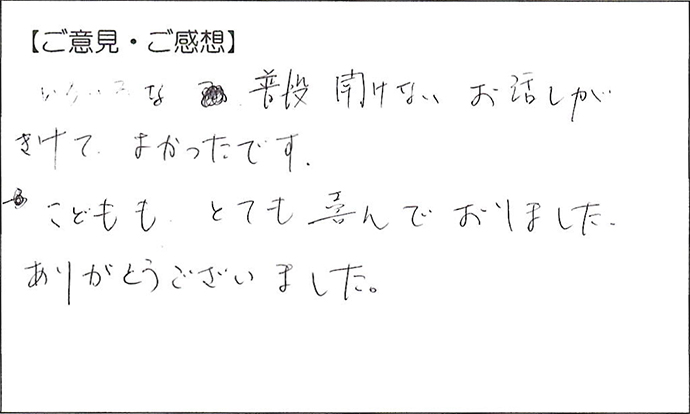 【ご意見・ご感想】
いろいろな 普段 聞けない お話しが
きけて よかったです.
こどもも とても 喜んで おりました.
ありがとうございました。